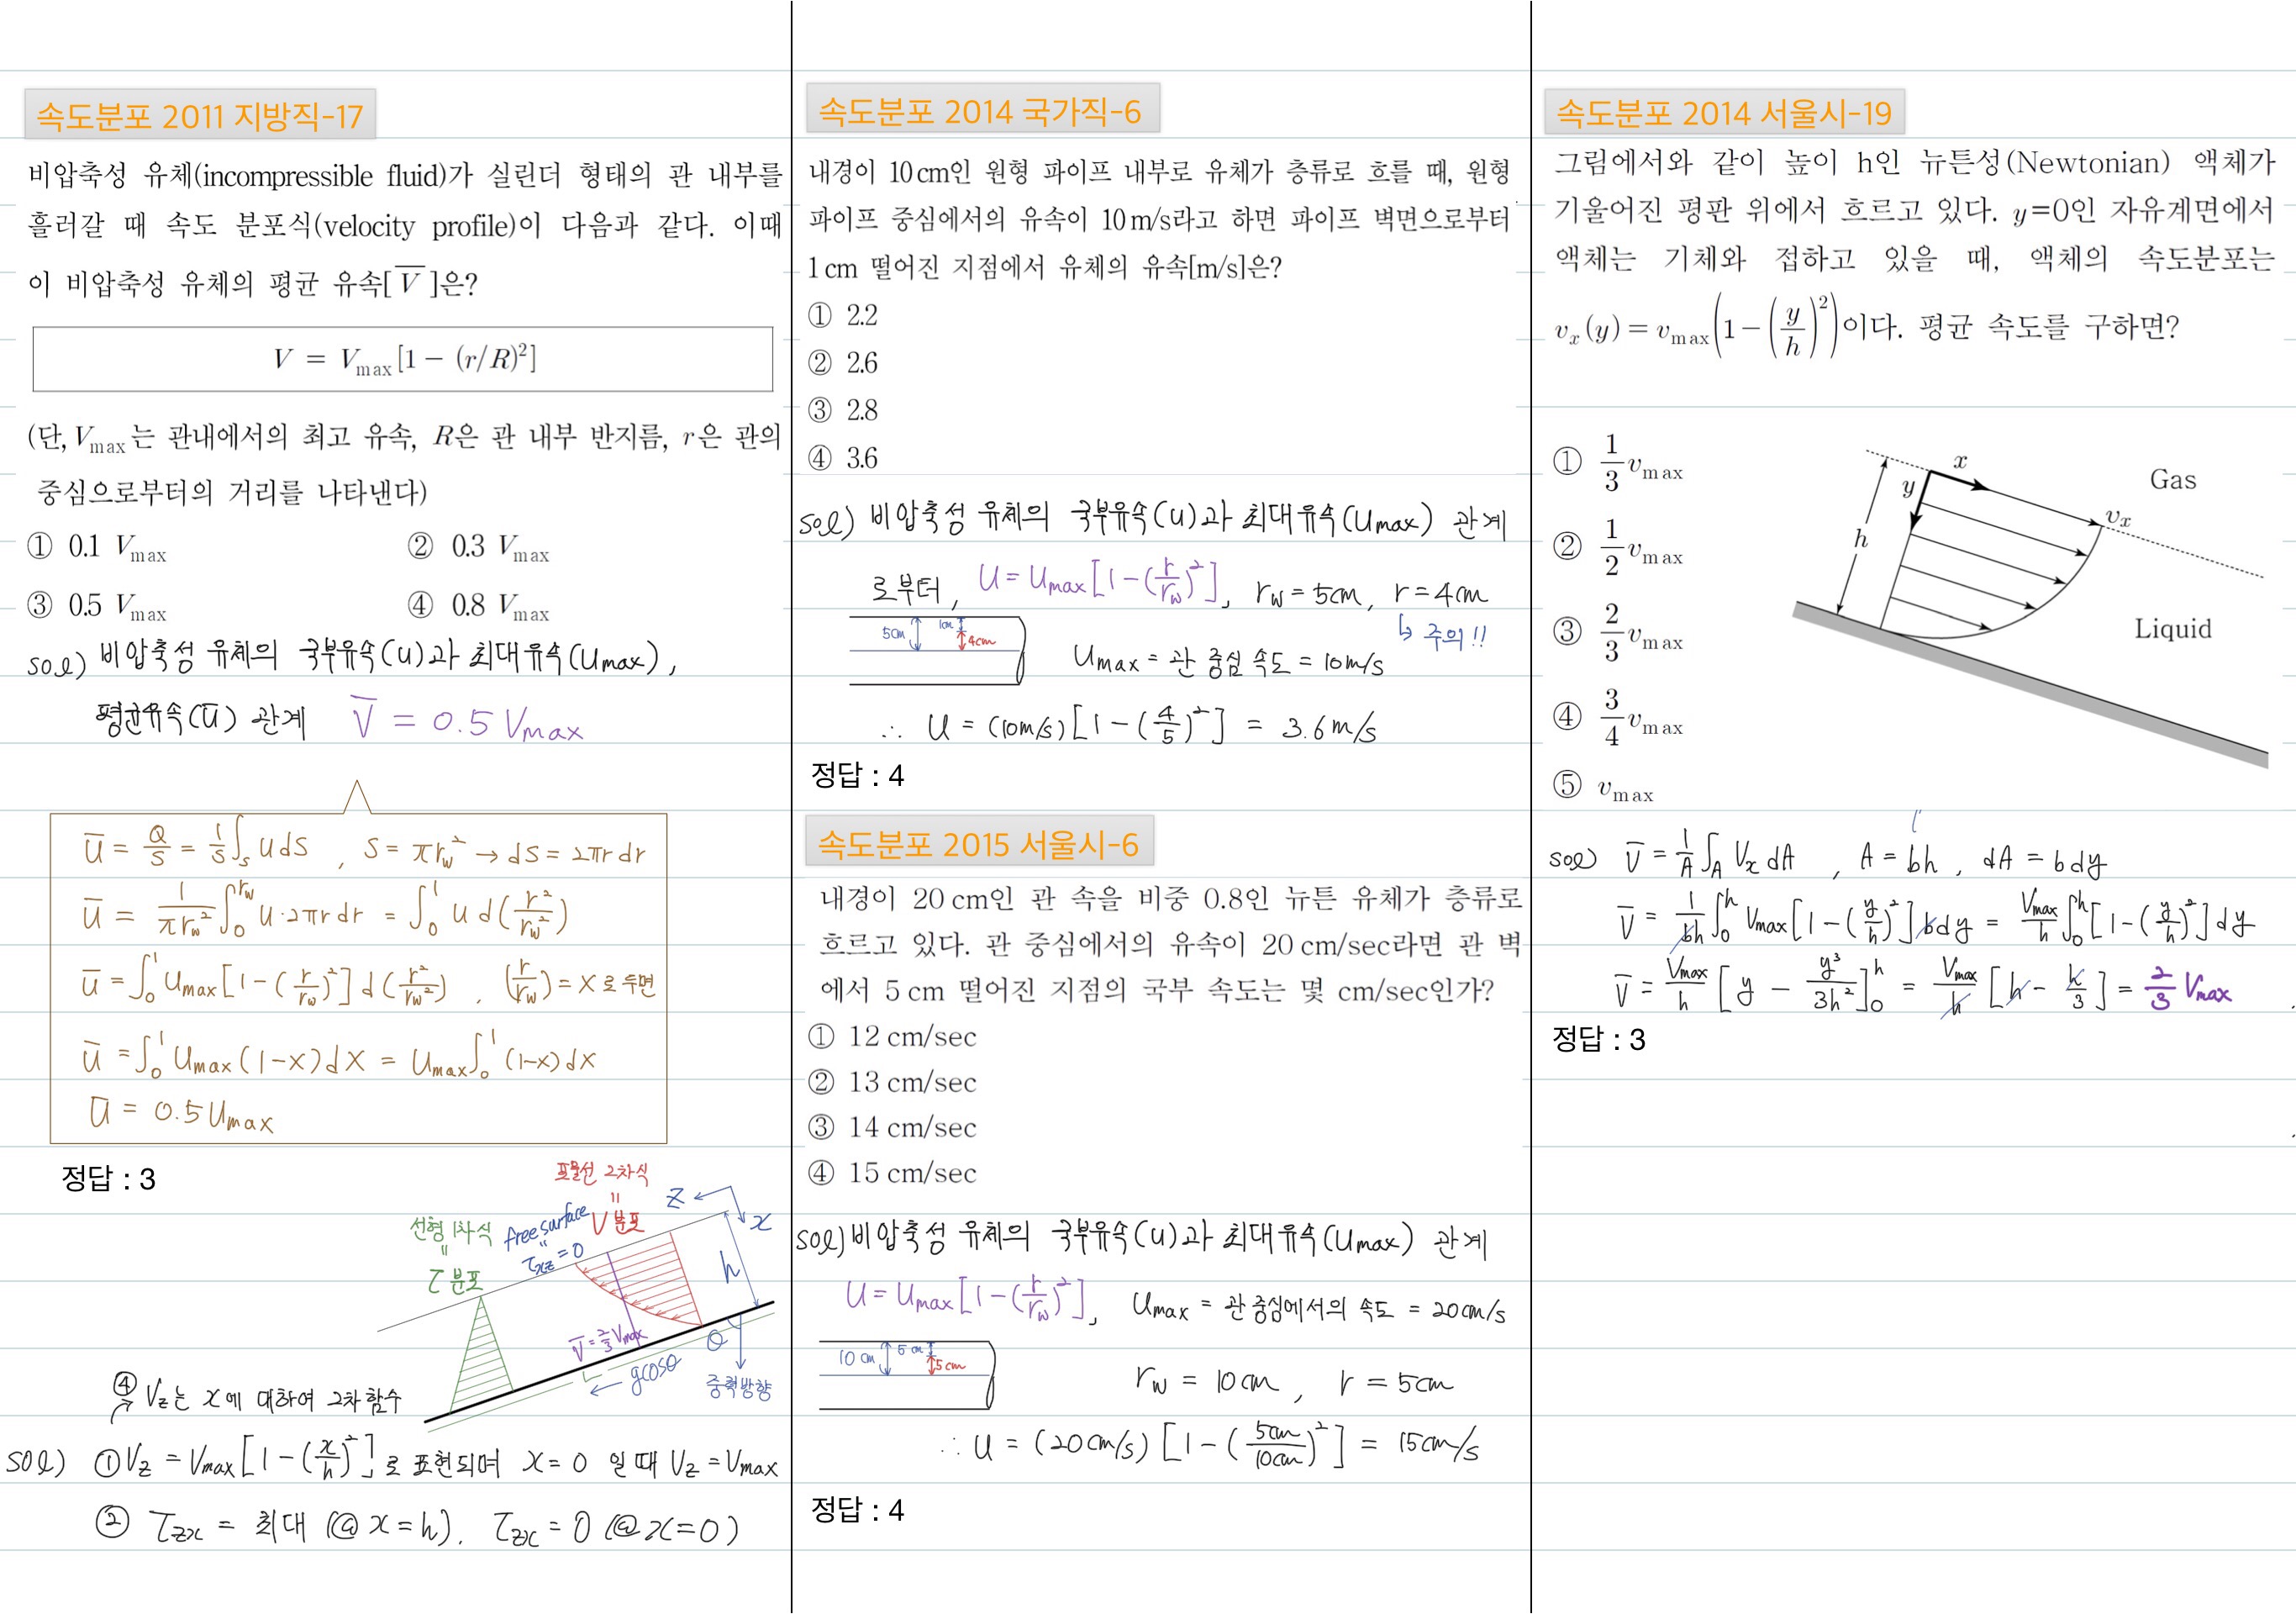 속도분포 2011 지방직-17
비압축성 유체(incompressible fluid)가 실린더 형태의 관 내부를
흘러갈 때 속도 분포식(velocity profile)이 다음과 같다. 이때
이 비압축성 유체의 평균 유속[ V̅ ]은?
V = Vmax [1 − (r/R)²]
(단, Vmax는 관내에서의 최고 유속, R은 관 내부 반지름, r은 관의
중심으로부터의 거리를 나타낸다)
① 0.1 Vmax ② 0.3 Vmax
③ 0.5 Vmax ④ 0.8 Vmax
sol) 비압축성 유체의 국부유속(u)과 최대유속(Umax),
평균유속(u̅) 관계 V̅ = 0.5 Vmax
u̅ = Q/S = 1/S ∫s u dS , S = πrw² → dS = 2πr dr
u̅ = 1/πrw² ∫₀^rw u·2πr dr = ∫₀¹ u d(r²/rw²)
u̅ = ∫₀¹ Umax[1-(r/rw)²] d(r²/rw²) , (r/rw) = X로 두면
u̅ = ∫₀¹ Umax(1-X)dX = Umax∫₀¹(1-X)dX
u̅ = 0.5 Umax
정답 : 3
포물선 2차식
=
V 분포
선형 1차식
=
τ 분포
free surface
=
τxz = 0
z
x
h
V̅ = 2/3 Vmax
θ
gcosθ
중력방향
④ Vz는 x에 대하여 2차함수
sol) ① Vz = Vmax[1-(x/h)²]로 표현되며 x=0 일때 Vz = Vmax
② τzx = 최대 (@ x=h). τzx = 0 (@ x=0)
속도분포 2014 국가직-6
내경이 10cm인 원형 파이프 내부로 유체가 층류로 흐를 때, 원형
파이프 중심에서의 유속이 10m/s라고 하면 파이프 벽면으로부터
1cm 떨어진 지점에서 유체의 유속[m/s]은?
① 2.2
② 2.6
③ 2.8
④ 3.6
sol) 비압축성 유체의 국부유속(u)과 최대유속(Umax) 관계
로부터, U = Umax[1-(r/rw)²], rw = 5cm, r = 4cm
↳ 주의!!
5cm 1cm 4cm
Umax = 관 중심 속도 = 10m/s
∴ U = (10m/s)[1-(4/5)²] = 3.6m/s
정답 : 4
속도분포 2015 서울시-6
내경이 20cm인 관 속을 비중 0.8인 뉴튼 유체가 층류로
흐르고 있다. 관 중심에서의 유속이 20cm/sec라면 관 벽
에서 5cm 떨어진 지점의 국부 속도는 몇 cm/sec인가?
① 12 cm/sec
② 13 cm/sec
③ 14 cm/sec
④ 15 cm/sec
sol) 비압축성 유체의 국부유속(u)과 최대유속(Umax) 관계
U = Umax[1-(r/rw)²], Umax = 관 중심에서의 속도 = 20cm/s
10cm 5cm 5cm
rw = 10cm , r = 5cm
∴ U = (20cm/s) [1-(5cm/10cm)²] = 15cm/s
정답 : 4
속도분포 2014 서울시-19
그림에서와 같이 높이 h인 뉴튼성(Newtonian) 액체가
기울어진 평판 위에서 흐르고 있다. y=0인 자유계면에서
액체는 기체와 접하고 있을 때, 액체의 속도분포는
vx(y) = vmax(1−(y/h)²)이다. 평균 속도를 구하면?
① 1/3 vmax
② 1/2 vmax
③ 2/3 vmax
④ 3/4 vmax
⑤ vmax
x
y
h
vx
Gas
Liquid
sol) V̅ = 1/A ∫A Vx dA , A = bh , dA = b dy
V̅ = 1/bh ∫₀^h Vmax[1-(y/h)²] b dy = Vmax/h ∫₀^h [1-(y/h)²] dy
V̅ = Vmax/h [y - y³/3h²]₀^h = Vmax/h [h - h/3] = 2/3 Vmax
정답 : 3